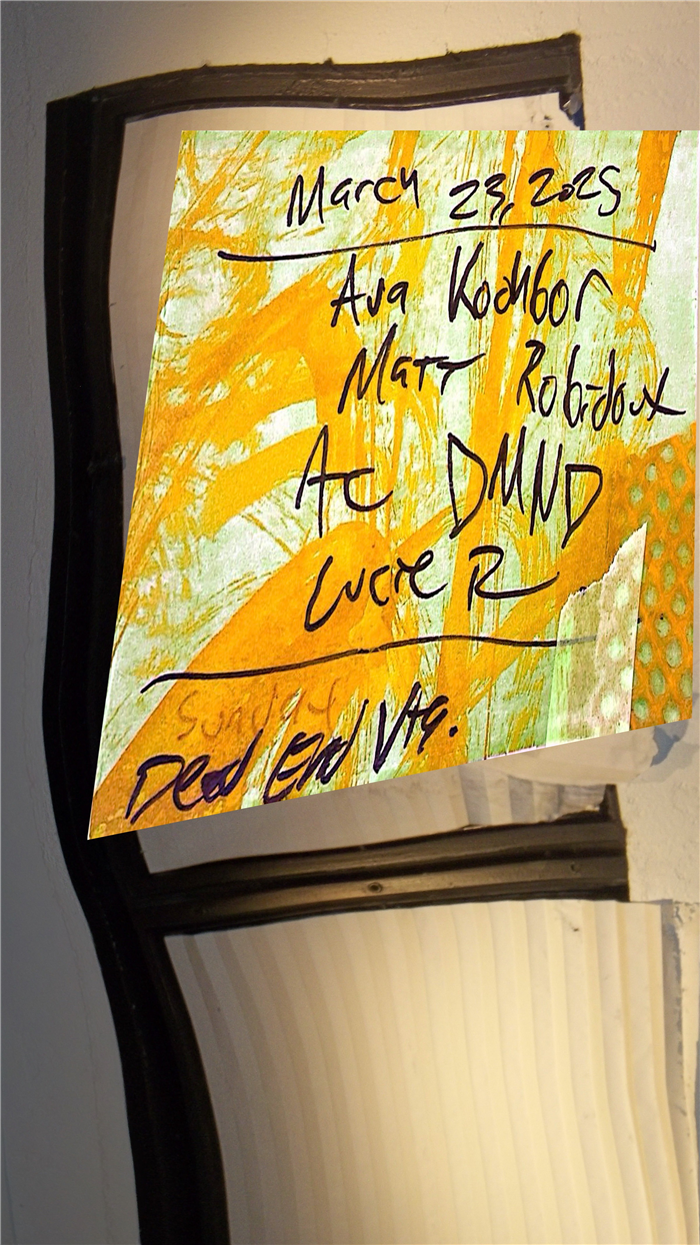 March 23, 2025
Ava Koohbor
Matt Robidoux
AC DMND
Lucie R
Sunday
Dead End Vtg.